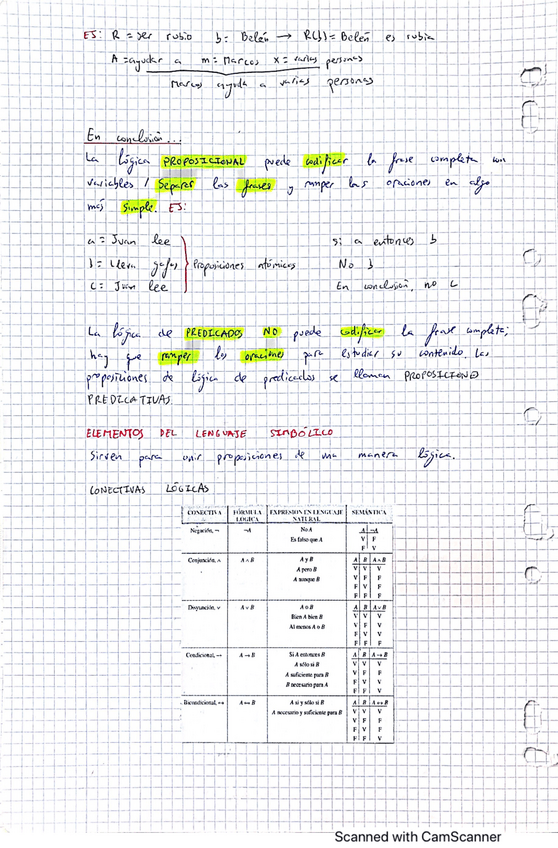 EJ: R = ser rubio b = Belén → R(b) = Belén es rubia
A = ayudar a m = Marcos x = varias personas
Marcos ayuda a varias personas
En conclusión...
La lógica PROPOSICIONAL puede codificar la frase completa con
variables / Separar las frases y romper las oraciones en algo
más simple. EJ:
a = Juan lee
b = Lleva gafas
c = Juan lee
Proposiciones atómicas
Si a entonces b
No b
En conclusión, no c
La lógica de PREDICADOS NO puede codificar la frase completa;
hay que romper las oraciones para estudiar su contenido. Las
proposiciones de lógica de predicados se llaman PROPOSICIONES
PREDICATIVAS
ELEMENTOS DEL LENGUAJE SIMBÓLICO
Sirven para unir proposiciones de una manera lógica.
CONECTIVAS LÓGICAS
CONECTIVA FÓRMULA LÓGICA EXPRESIÓN EN LENGUAJE NATURAL SEMÁNTICA
Negación, ¬ ¬A No A
Es falso que A
A ¬A
V F
F V
Conjunción, ∧ A ∧ B A y B
A pero B
A aunque B
A B A ∧ B
V V V
V F F
F V F
F F F
Disyunción, ∨ A ∨ B A o B
Bien A bien B
Al menos A o B
A B A ∨ B
V V V
V F V
F V V
F F F
Condicional, → A → B Si A entonces B
A sólo si B
A suficiente para B
B necesario para A
A B A → B
V V V
V F F
F V V
F F V
Bicondicional, ↔ A ↔ B A si y sólo si B
A necesario y suficiente para B
A B A ↔ B
V V V
V F F
F V F
F F V
Scanned with CamScanner